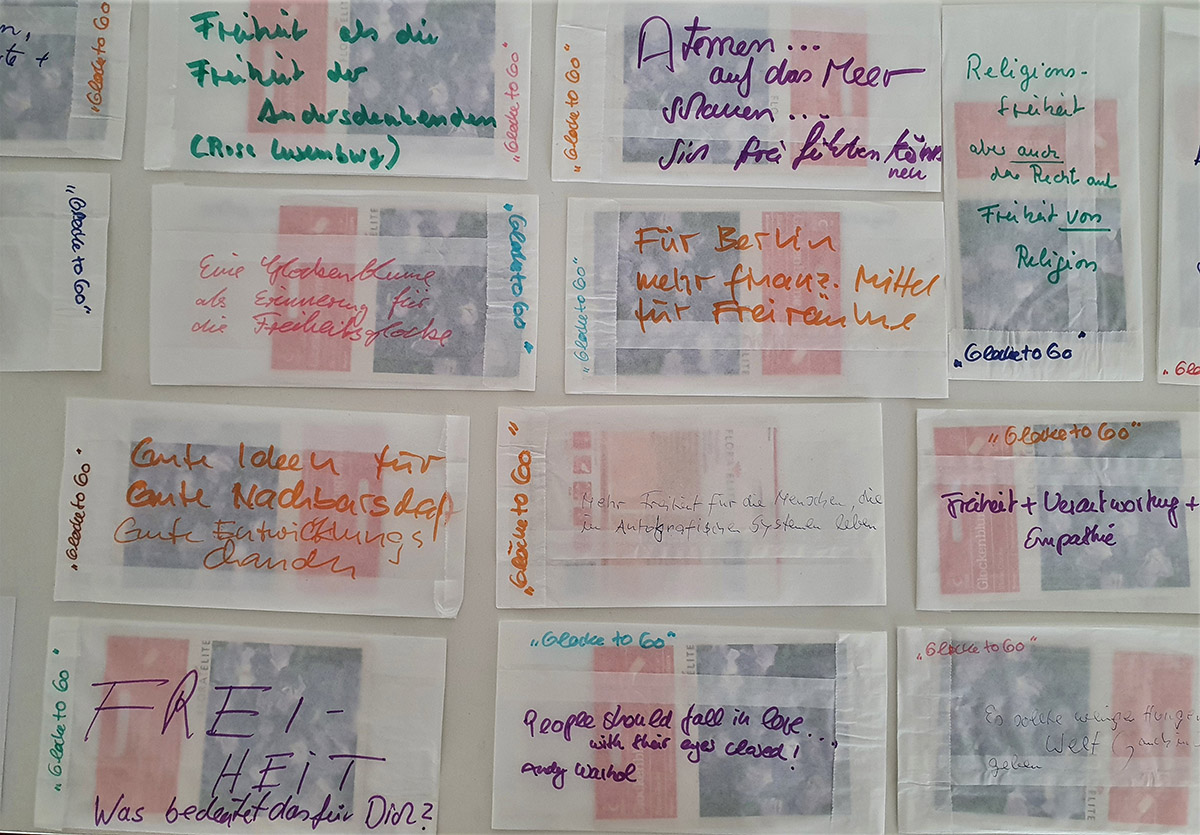 "Glocke to Go"
Freiheit als die
Freiheit der
Andersdenkenden
(Rosa Luxemburg)
"Glocke to Go"
"Glocke to Go"
Atmen...
auf das Meer
schauen...
sich frei fühlen kön
nen
Religions-
freiheit
aber auch
das Recht auf
Freiheit von
Religion
"Glocke to Go"
"Glocke to Go"
Eine Glockenblume
als Erinnerung für
die Freiheitsglocke
ELITE
"Glocke to Go"
"Glocke to Go"
Für Berlin
mehr finanz. Mittel
für Freiräume
"Glocke to Go"
Gute Ideen für
Gute Nachbarschaft
Gute Entwicklungs
chancen
"Glocke to Go"
Mehr Freiheit für die Menschen, die
in Autokratischen Systemen leben
"Glocke to Go"
Freiheit + Verantwortung +
Empathie
Glockenblume
"Glocke to Go"
ELITE
FREI-
HEIT
Was bedeutet das für Dich?
"Glocke to Go"
ELITE
People should fall in love...
with their eyes closed!
Andy Warhol
"Glocke to Go"
Es sollte weniger Hunger
Welt
geben
ELITE